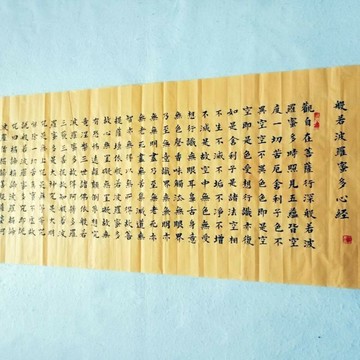 般若波羅蜜多心經
觀自在菩薩行深般若波
羅蜜多時照見五蘊皆空
度一切苦厄舍利子色不
異空空不異色色即是空
空即是色受想行識亦復
如是舍利子是諸法空相
不生不滅不垢不淨不增
不減是故空中無色無受
想行識無眼耳鼻舌身意
無色聲香味觸法無眼界
乃至無意識界無無明亦
無無明盡乃至無老死亦
無老死盡無苦集滅道無
智亦無得以無所得故菩
提薩埵依般若波羅蜜多
故心無罣礙無罣礙故無
有恐怖遠離顛倒夢想究
竟涅槃三世諸佛依般若
波羅蜜多故得阿耨多羅
三藐三菩提故知般若波
羅蜜多是大神咒是大明
咒是無上咒是無等等咒
能除一切苦真實不虛故
說般若波羅蜜多咒即說
咒曰揭諦揭諦
波羅僧揭諦菩提薩婆